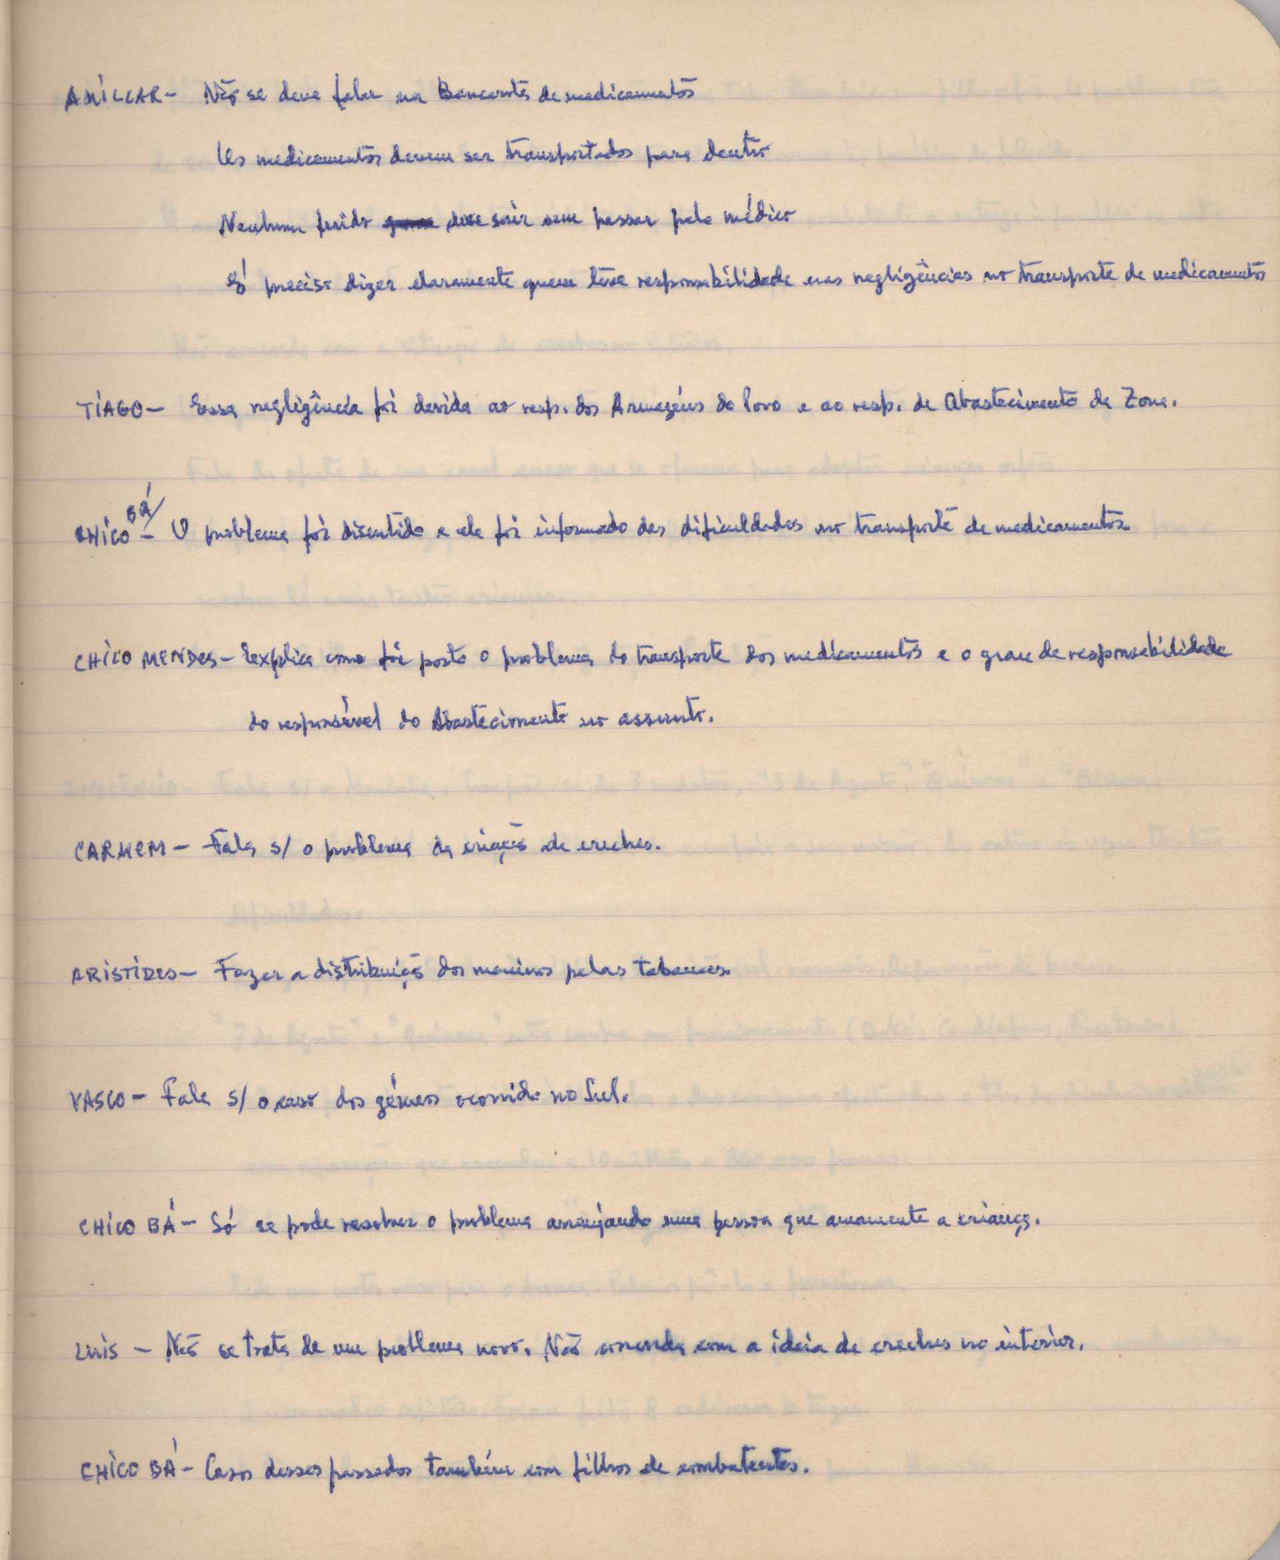 AMÍLCAR - Não se deve falar na Bancarrota de medicamentos
Os medicamentos devem ser transportados para dentro
Nenhum ferido deve sair sem passar pelo médico
É preciso dizer claramente quem teve responsabilidade nas negligências no transporte de medicamentos
TIAGO - Essa negligência foi devida ao resp. dos Armazéns do Povo e ao resp. de Abastecimento da Zona.
CHICO BÁ - O problema foi discutido e ele foi informado das dificuldades no transporte de medicamentos
CHICO MENDES - Explica como foi posto o problema do transporte dos medicamentos e o grau de responsabilidade
do responsável do Abastecimento no assunto.
CARMEM - Fala s/ o problema da criação de creches.
ARISTIDES - Fazer a distribuição dos meninos pelas tabancas
VASCO - Fala s/ o caso dos gémeos ocorrido no Sul.
CHICO BÁ - Só se pode resolver o problema arranjando uma pessoa que amamente a criança.
LUIS - Não se trata de um problema novo. Não concorda com a ideia de creches no interior.
CHICO BÁ - Casos desses passados também com filhos de combatentes.